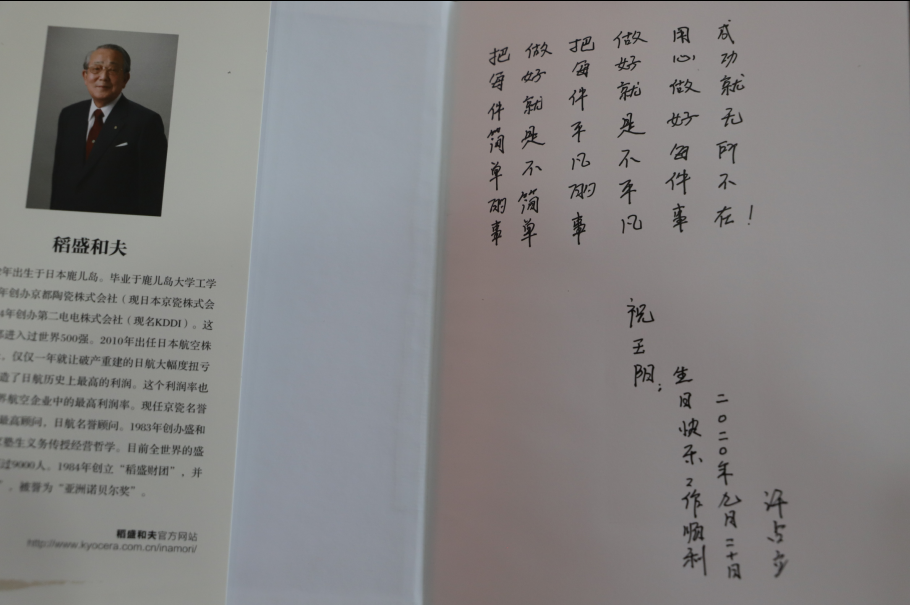 稻盛和夫
年出生于日本鹿儿岛。毕业于鹿儿岛大学工学
年创办京都陶瓷株式会社（现日本京瓷株式会
4年创办第二电电株式会社（现名KDDI）。这
都进入过世界500强。2010年出任日本航空株
，仅仅一年就让破产重建的日航大幅度扭亏
造了日航历史上最高的利润。这个利润率也
界航空企业中的最高利润率。现任京瓷名誉
最高顾问，日航名誉顾问。1983年创办盛和
塾生义务传授经营哲学。目前全世界的盛
过9000人。1984年创立“稻盛财团”，并
”，被誉为“亚洲诺贝尔奖”。
稻盛和夫官方网站
http://www.kyocera.com.cn/inamori/
把每件简单的事
做好就是不简单
把每件平凡的事
做好就是不平凡
用心做好每件事
成功就无所不在！
祝王阳：
生日快乐，工作顺利
二〇二〇年九月二十日